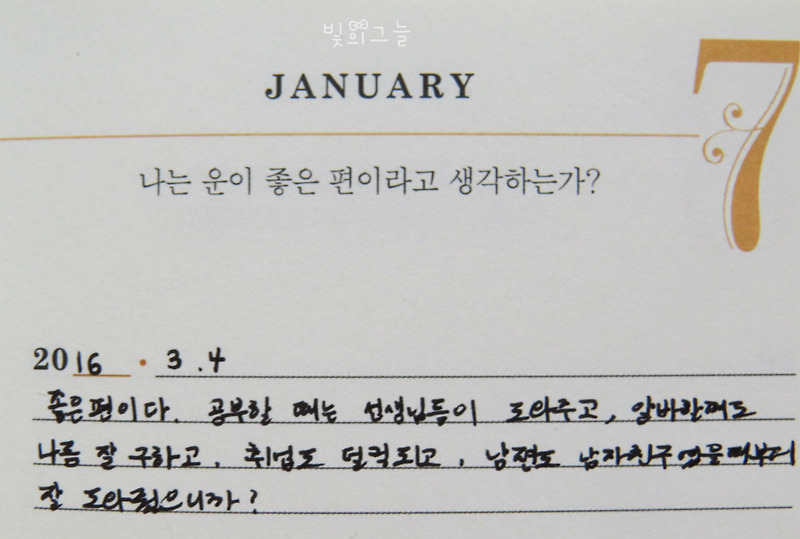 빛의그늘
JANUARY
7
나는 운이 좋은 편이라고 생각하는가?
2016 · 3.4
좋은편이다. 공부할 때는 선생님들이 도와주고, 알바할때도
나름 잘 구하고, 취업도 덜컥되고, 남편도 남자친구였을때부터
잘 도와줬으니까?